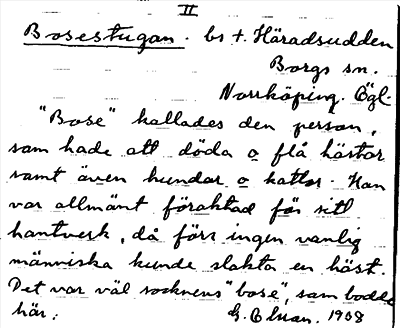 II
Bosestugan. bs t. Häradsudden
Borgs sn.
Norrköping. Ögl.
"Bose" kallades den person,
som hade att döda o flå hästar
samt även hundar o kattor. Han
var allmänt föraktad för sitt
hantverk, då förr ingen vanlig
människa kunde slakta en häst.
Det var väl socknens "bose", som bodde
här. 1908